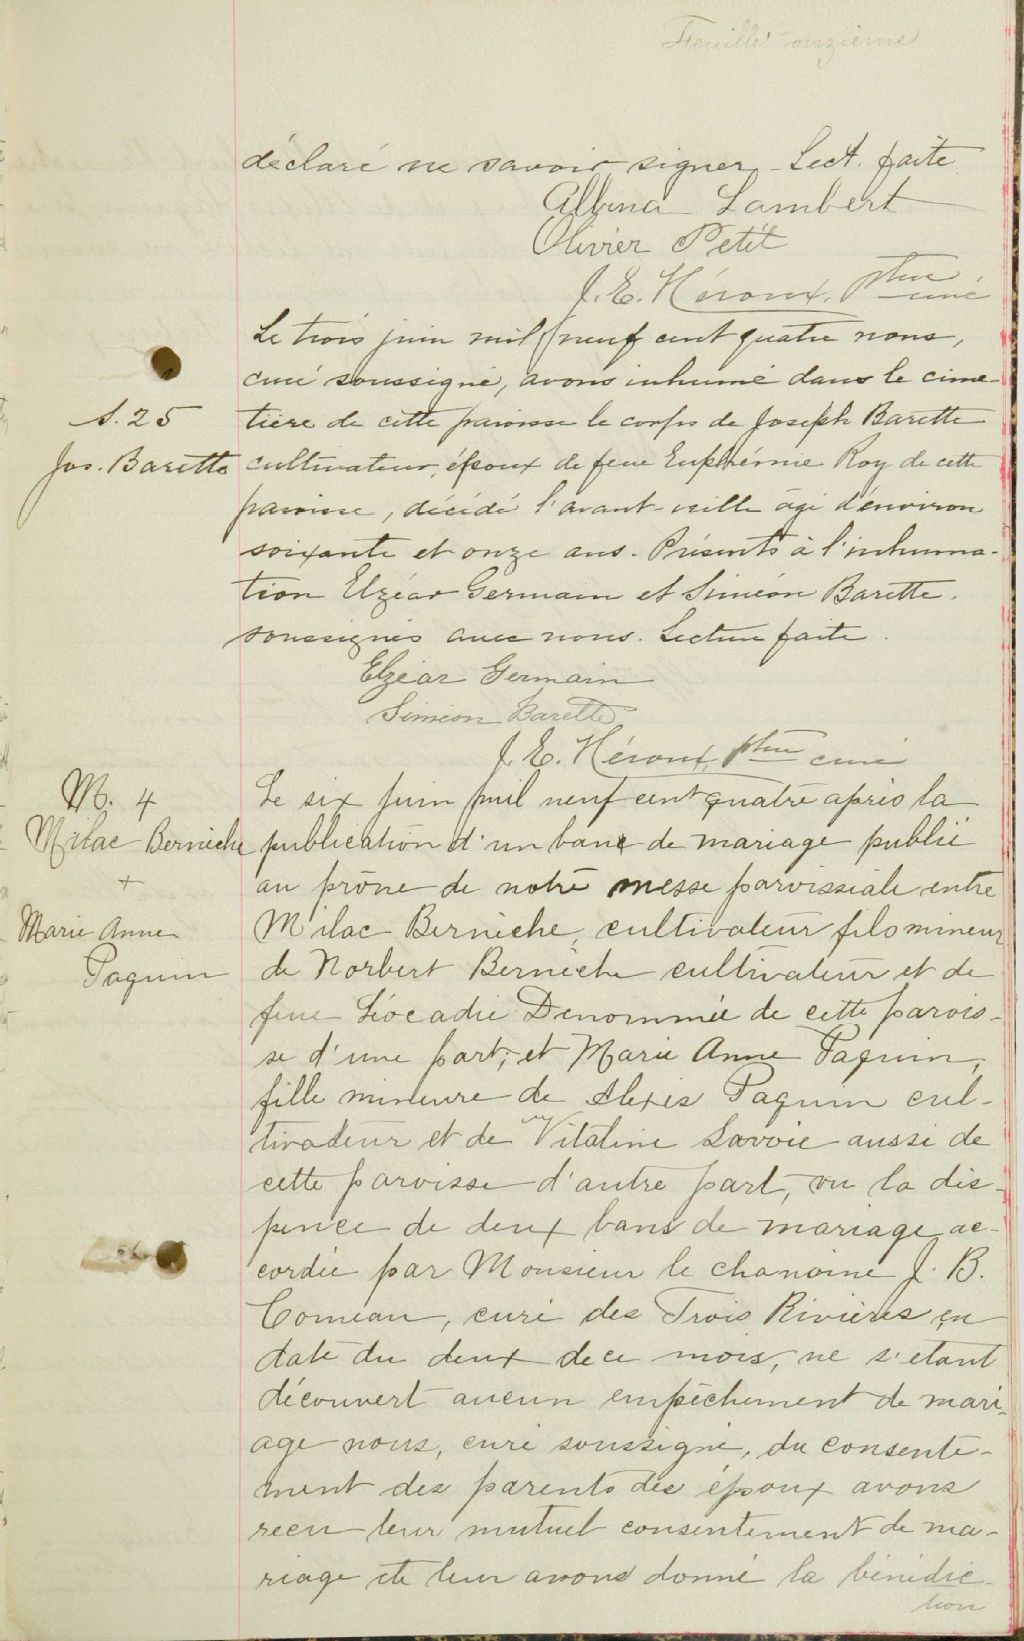 Feuille onzième
déclaré ne savoir signer. Lect. faite
Albina Lambert
Olivier Petit
J. E. Héroux, Ptre curé
S. 25
Jos. Barette
Le trois juin mil neuf cent quatre nous,
curé soussigné, avons inhumé dans le cime-
tière de cette paroisse le corps de Joseph Barette
cultivateur, époux de feue Euphémie Roy de cette
paroisse, décédé l'avant-veille âgé d'environ
soixante et onze ans. Présents à l'inhuma-
tion Elzéar Germain et Siméon Barette.
soussignés avec nous. Lecture faite.
Elzéar Germain
Siméon Barette
J. E. Héroux, ptre curé
M. 4
Milac Berniche
+
Marie Anne
Paquin
Le six juin mil neuf cent quatre après la
publication d'un banc de mariage publié
au prône de notre messe paroissiale entre
Milac Berniche, cultivateur fils mineur
de Norbert Berniche cultivateur et de
feue Léocadie Dénommée de cette parois-
se d'une part, et Marie Anne Paquin,
fille mineure de Alexis Paquin cul-
tivateur et de Vitaline Savoie aussi de
cette paroisse d'autre part, vu la dis-
pence de deux bans de mariage ac-
cordée par Monsieur le chanoine J. B.
Comeau, curé des Trois Rivières en
date du deux de ce mois, ne s'étant
découvert aucun empêchement de mari-
age nous, curé soussigné, du consente-
ment des parents des époux avons
reçu leur mutuel consentement de ma-
riage et leur avons donné la bénédic-
tion